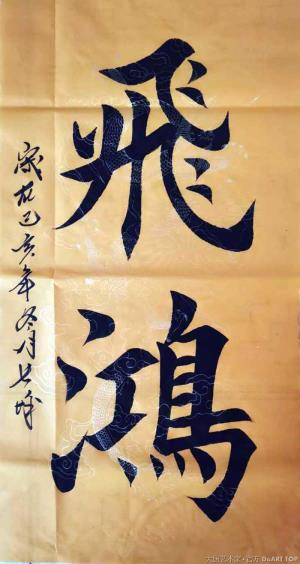 飛
鴻
歲在己亥年冬月上城
大国艺术家·官方 DaART.TOP